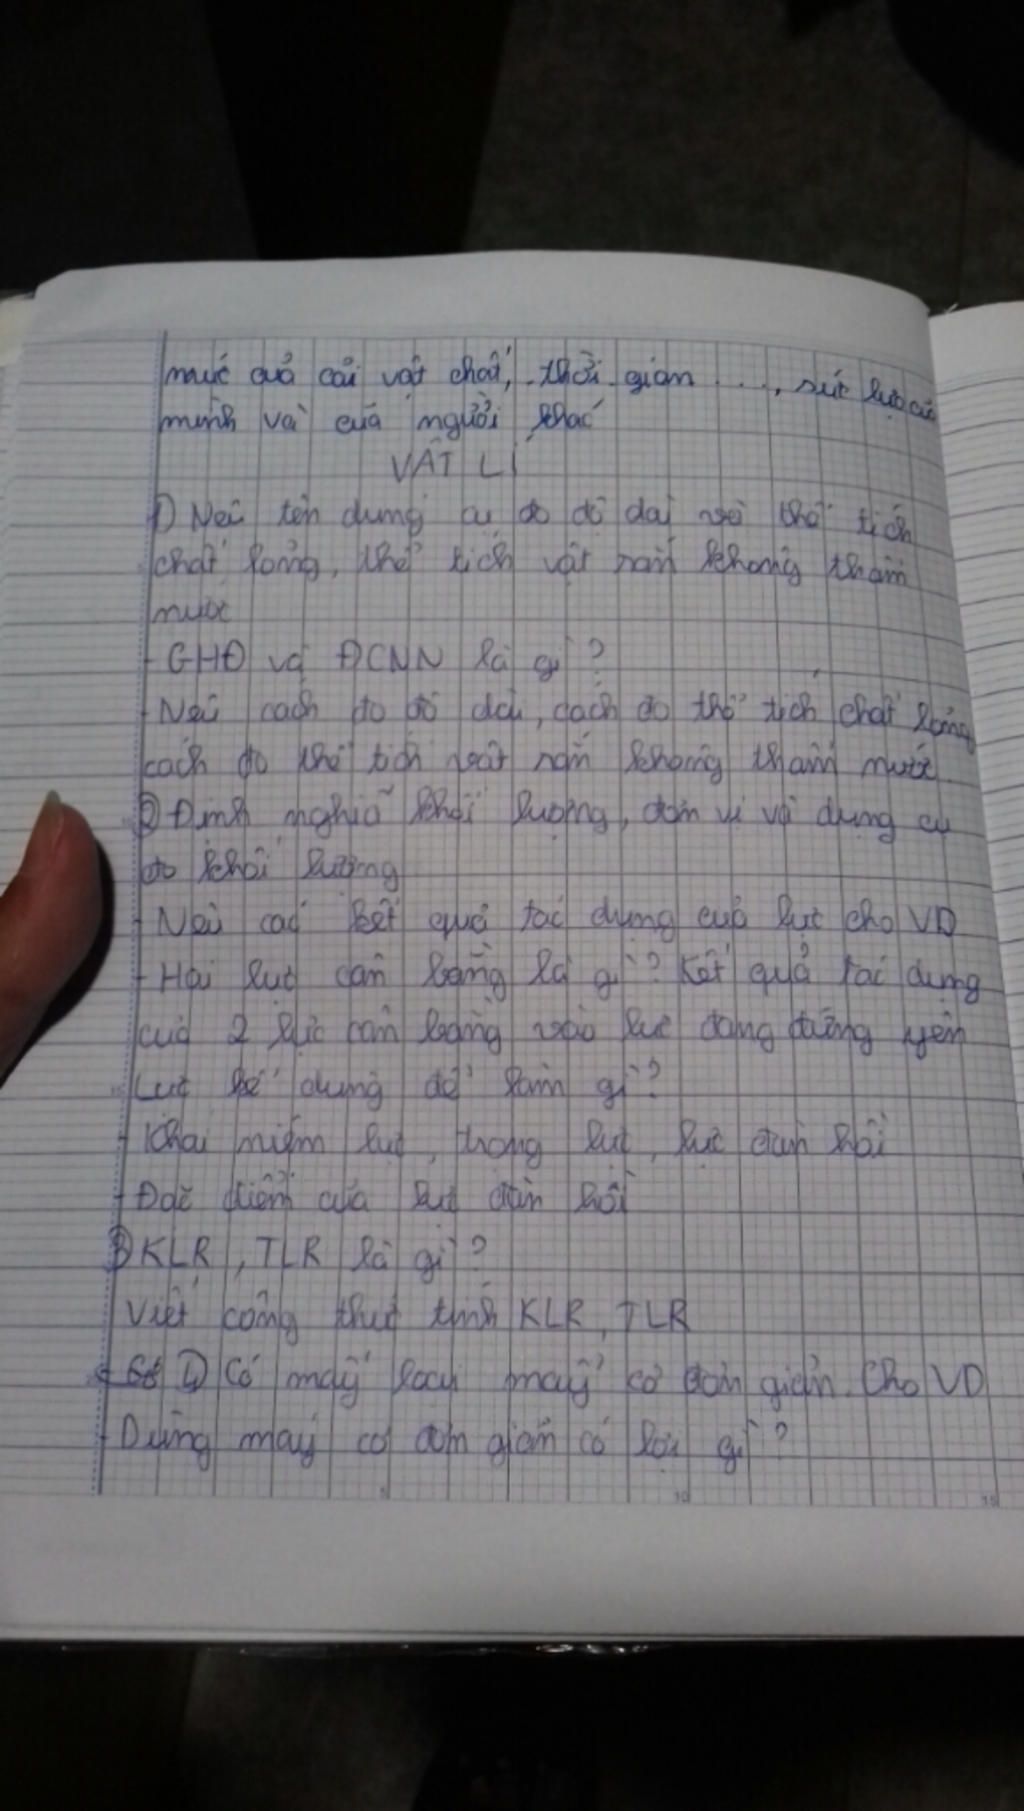 mức quả cải vật chất, thời gian ..., sức lực của
mình và của người khác
VẬT LÍ
1) Nêu tên dụng cụ đo độ dài và thể tích
chất lỏng, thể tích vật rắn không thấm
nước
- GHĐ và ĐCNN là gì?
- Nêu cách đo độ dài, cách đo thể tích chất lỏng
cách đo thể tích vật rắn không thấm nước
2) Định nghĩa khối lượng, đơn vị và dụng cụ
đo khối lượng
- Nêu các kết quả tác dụng của lực cho VD
- Hai lực cân bằng là gì? Kết quả tác dụng
của 2 lực cân bằng vào lực đang đứng yên
Lực kế dùng để làm gì?
- Khái niệm lực, trọng lực, lực đàn hồi
- Đặc điểm của lực đàn hồi
3) KLR, TLR là gì?
Viết công thức tính KLR, TLR
4) Có mấy loại máy cơ đơn giản. Cho VD
- Dùng máy cơ đơn giản có lợi gì?